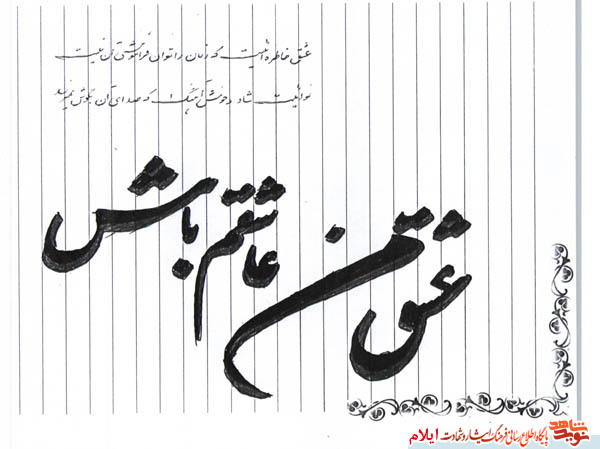 عشق خاطره ایست که زمان را توان فراموشی آن نیست
نوائیست شاد و خوش آهنگ که صدای آن بگوش نمیرسد
عشق من عاشقم باش
نوید شاهد
پایگاه اطلاع رسانی فرهنگ ایثار و شهادت ایلام